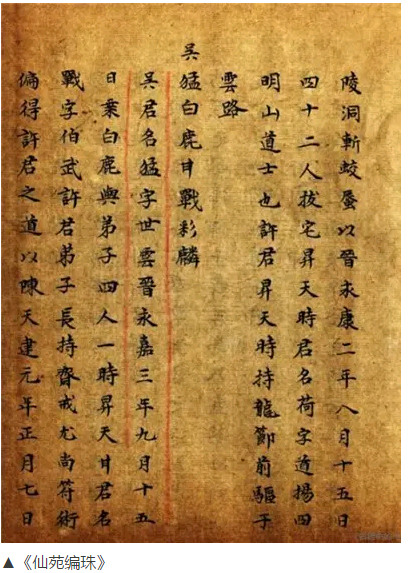 陵洞斬蛟蜃以晉永康二年八月十五日
四十二人拔宅昇天時君名荷字道揚四
明山道士也許君昇天時持龍節前驅于
雲路
吴猛白鹿甘戰彩麟
吴君名猛字世雲晉永嘉三年九月十五
日乗白鹿與弟子四人一時昇天甘君名
戰字伯武許君弟子長持齋戒尤尚符術
偏得許君之道以陳天建元年正月七日
▲《仙苑编珠》